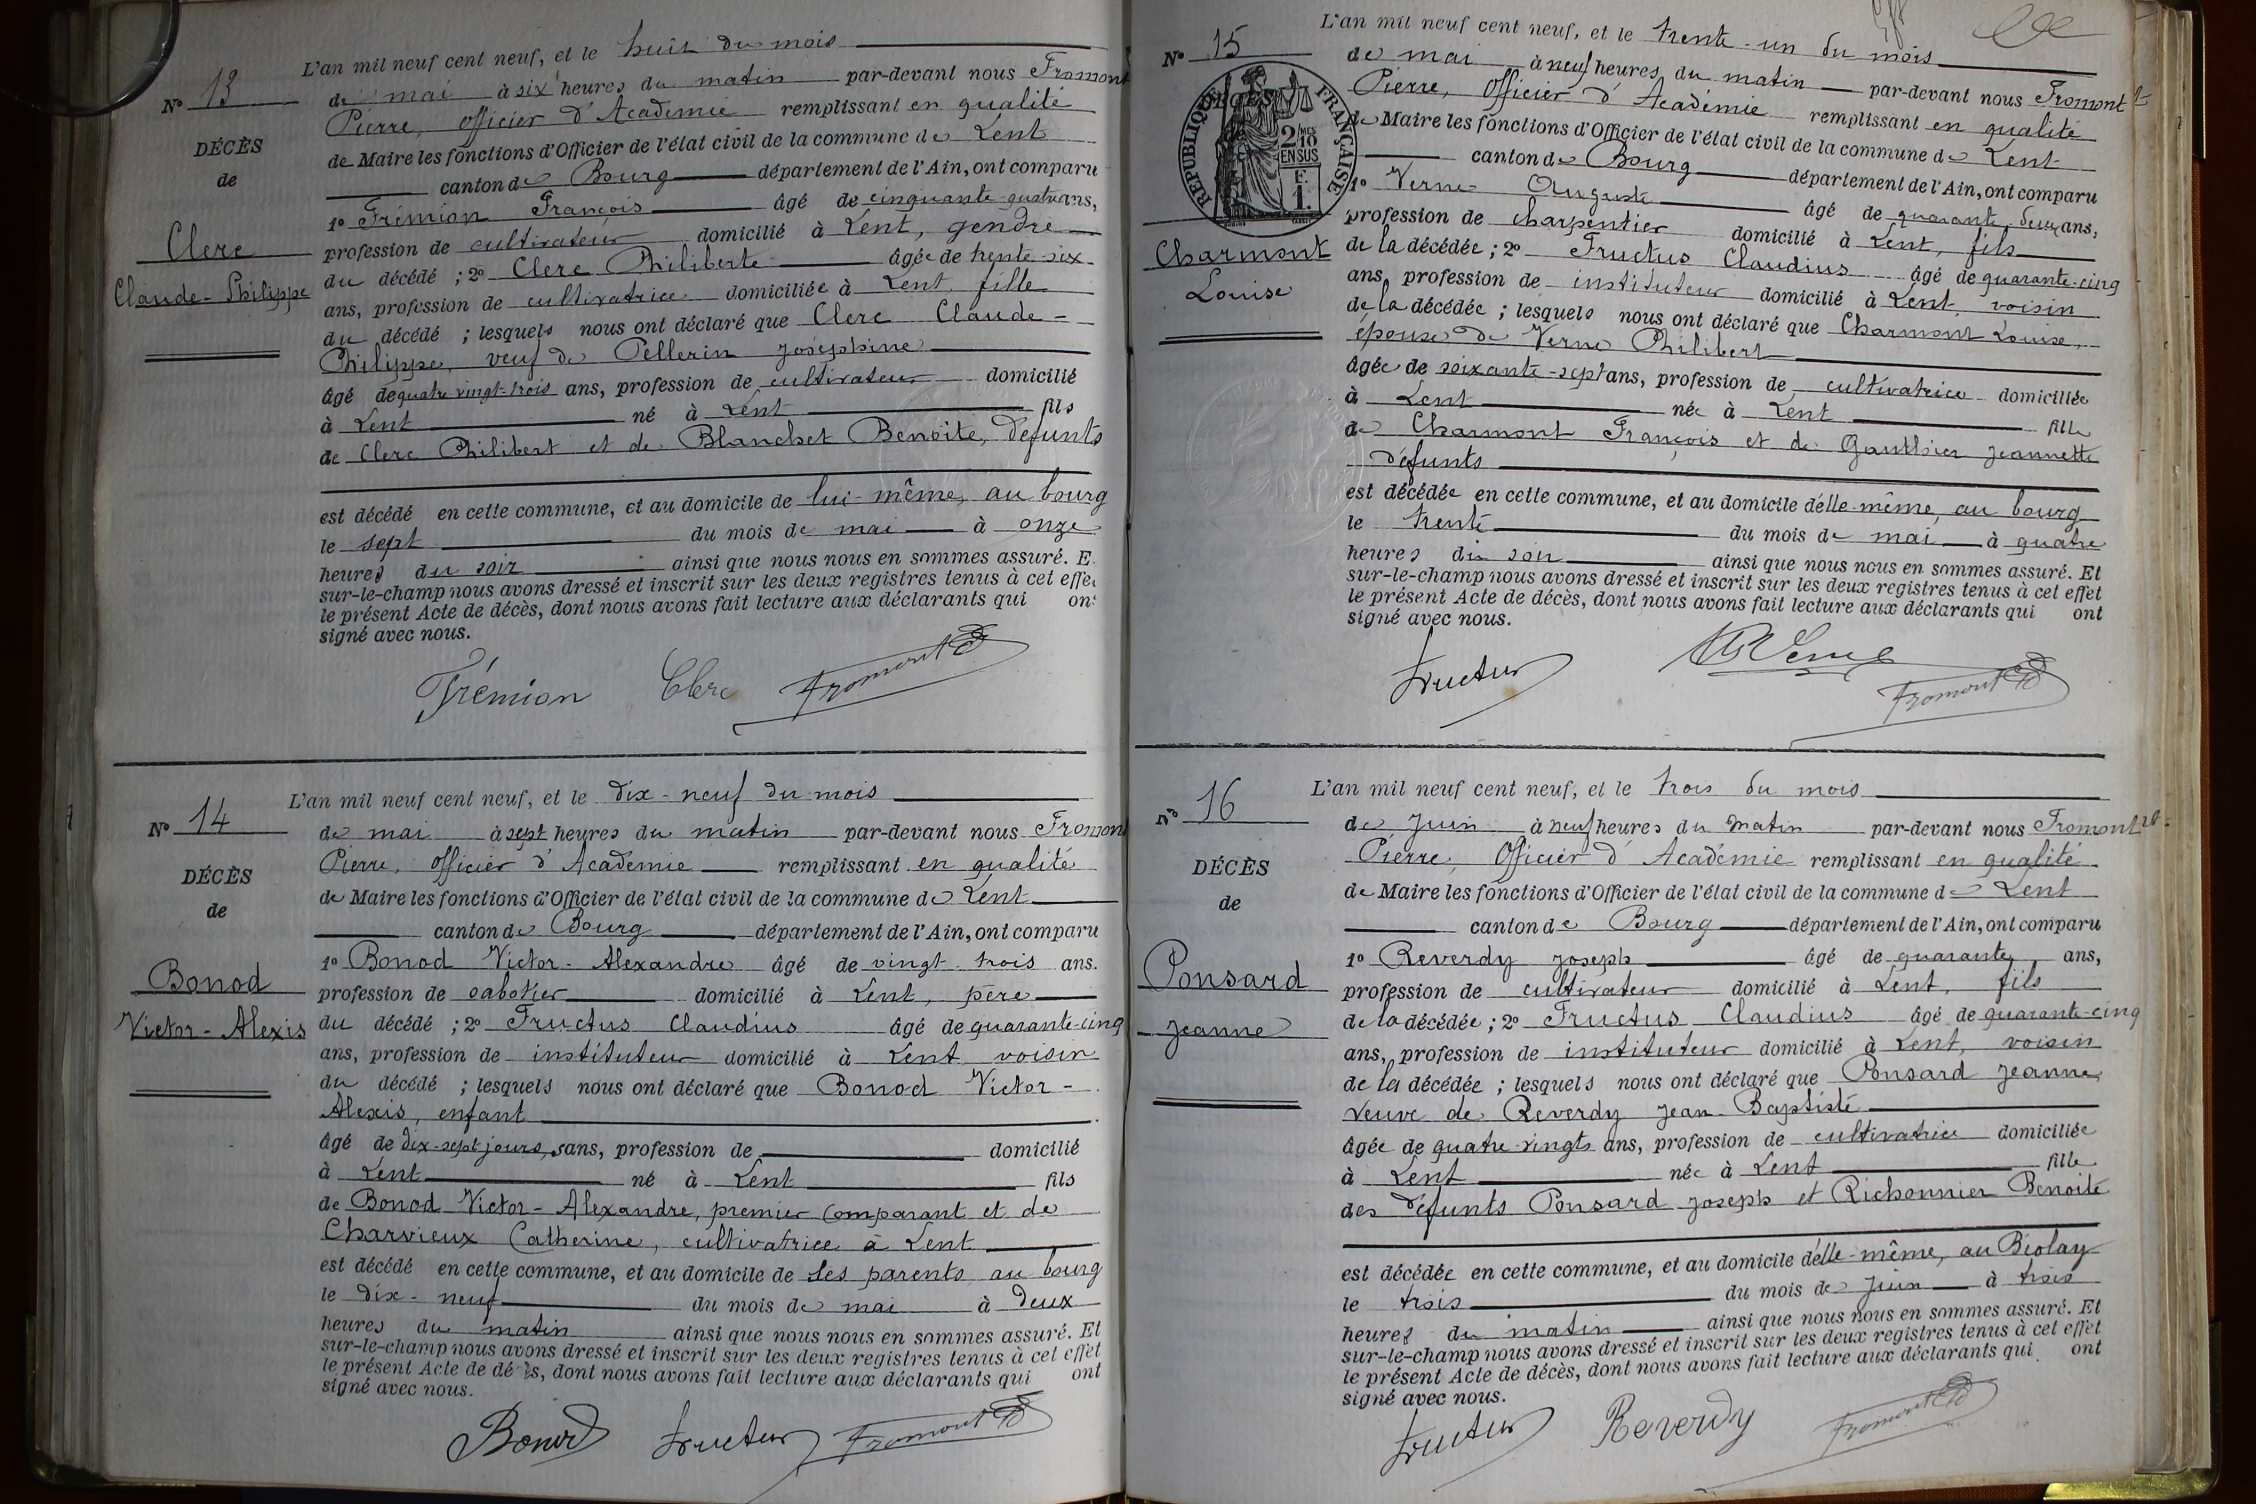 L'an mil neuf cent neuf, et le huit du mois
N° 13
de mai à six heures du matin par-devant nous Fromont
Pierre, Officier d'Académie remplissant en qualité
DÉCÈS
de Maire les fonctions d'Officier de l'état civil de la commune de Lent
de
canton de Bourg département de l'Ain, ont comparu
1° Frémion François âgé de cinquante-quatre ans,
Clerc
profession de cultivateur domicilié à Lent, gendre
Claude-Philippe
du décédé ; 2° Clerc Philiberte âgée de trente-six
ans, profession de cultivatrice domiciliée à Lent, fille
du décédé ; lesquels nous ont déclaré que Clerc Claude-
Philippe, veuf de Pellerin Joséphine
âgé de quatre-vingt-trois ans, profession de cultivateur domicilié
à Lent né à Lent fils
de Clerc Philibert et de Blanchet Benoîte, défunts
est décédé en cette commune, et au domicile de lui-même, au bourg
le sept du mois de mai à onze
heures du soir ainsi que nous nous en sommes assuré. E
sur-le-champ nous avons dressé et inscrit sur les deux registres tenus à cet effe
le présent Acte de décès, dont nous avons fait lecture aux déclarants qui on
signé avec nous.
Frémion Clerc Fromont
L'an mil neuf cent neuf, et le dix-neuf du mois
N° 14
de mai à sept heures du matin par-devant nous Fromont
Pierre, Officier d'Académie remplissant en qualité
DÉCÈS
de Maire les fonctions d'Officier de l'état civil de la commune de Lent
de
canton de Bourg département de l'Ain, ont comparu
1° Bonod Victor-Alexandre âgé de vingt-trois ans.
Bonod
profession de sabotier domicilié à Lent, père
Victor-Alexis
du décédé ; 2° Fructus Claudius âgé de quarante-cinq
ans, profession de instituteur domicilié à Lent, voisin
du décédé ; lesquels nous ont déclaré que Bonod Victor-
Alexis, enfant
âgé de dix-sept jours, sans, profession de domicilié
à Lent né à Lent fils
de Bonod Victor-Alexandre, premier comparant et de
Charvieux Catherine, cultivatrice à Lent
est décédé en cette commune, et au domicile de ses parents au bourg
le dix-neuf du mois de mai à deux
heures du matin ainsi que nous nous en sommes assuré. Et
sur-le-champ nous avons dressé et inscrit sur les deux registres tenus à cet effet
le présent Acte de décès, dont nous avons fait lecture aux déclarants qui ont
signé avec nous.
Bonod Fructus Fromont
L'an mil neuf cent neuf, et le trente-un du mois
N° 15
de mai à neuf heures du matin par-devant nous Fromont
Pierre, Officier d'Académie remplissant en qualité
RÉPUBLIQUE FRANÇAISE
2/10 MES
EN SUS
F.
1.
de Maire les fonctions d'Officier de l'état civil de la commune de Lent
canton de Bourg département de l'Ain, ont comparu
1° Verne Auguste âgé de quarante-deux ans,
profession de charpentier domicilié à Lent, fils
Charmont
Louise
de la décédée ; 2° Fructus Claudius âgé de quarante-cinq
ans, profession de instituteur domicilié à Lent, voisin
de la décédée ; lesquels nous ont déclaré que Charmont Louise,
épouse de Verne Philibert
âgée de soixante-sept ans, profession de cultivatrice domiciliée
à Lent née à Lent fille
de Charmont François et de Gauthier Jeannette
défunts
est décédée en cette commune, et au domicile d'elle-même, au bourg
le trente du mois de mai à quatre
heures du soir ainsi que nous nous en sommes assuré. Et
sur-le-champ nous avons dressé et inscrit sur les deux registres tenus à cet effet
le présent Acte de décès, dont nous avons fait lecture aux déclarants qui ont
signé avec nous.
Fructus Verne Fromont
L'an mil neuf cent neuf, et le trois du mois
N° 16
de Juin à neuf heures du matin par-devant nous Fromont
Pierre, Officier d'Académie remplissant en qualité
DÉCÈS
de Maire les fonctions d'Officier de l'état civil de la commune de Lent
de
canton de Bourg département de l'Ain, ont comparu
1° Reverdy Joseph âgé de quarante ans,
Ponsard
profession de cultivateur domicilié à Lent, fils
Jeanne
de la décédée ; 2° Fructus Claudius âgé de quarante-cinq
ans, profession de instituteur domicilié à Lent, voisin
de la décédée ; lesquels nous ont déclaré que Ponsard Jeanne,
veuve de Reverdy Jean-Baptiste
âgée de quatre-vingts ans, profession de cultivatrice domiciliée
à Lent née à Lent fille
des défunts Ponsard Joseph et Richonnier Benoîte
est décédée en cette commune, et au domicile d'elle-même, au Biolay
le trois du mois de Juin à trois
heures du matin ainsi que nous nous en sommes assuré. Et
sur-le-champ nous avons dressé et inscrit sur les deux registres tenus à cet effet
le présent Acte de décès, dont nous avons fait lecture aux déclarants qui ont
signé avec nous.
Fructus Reverdy Fromont